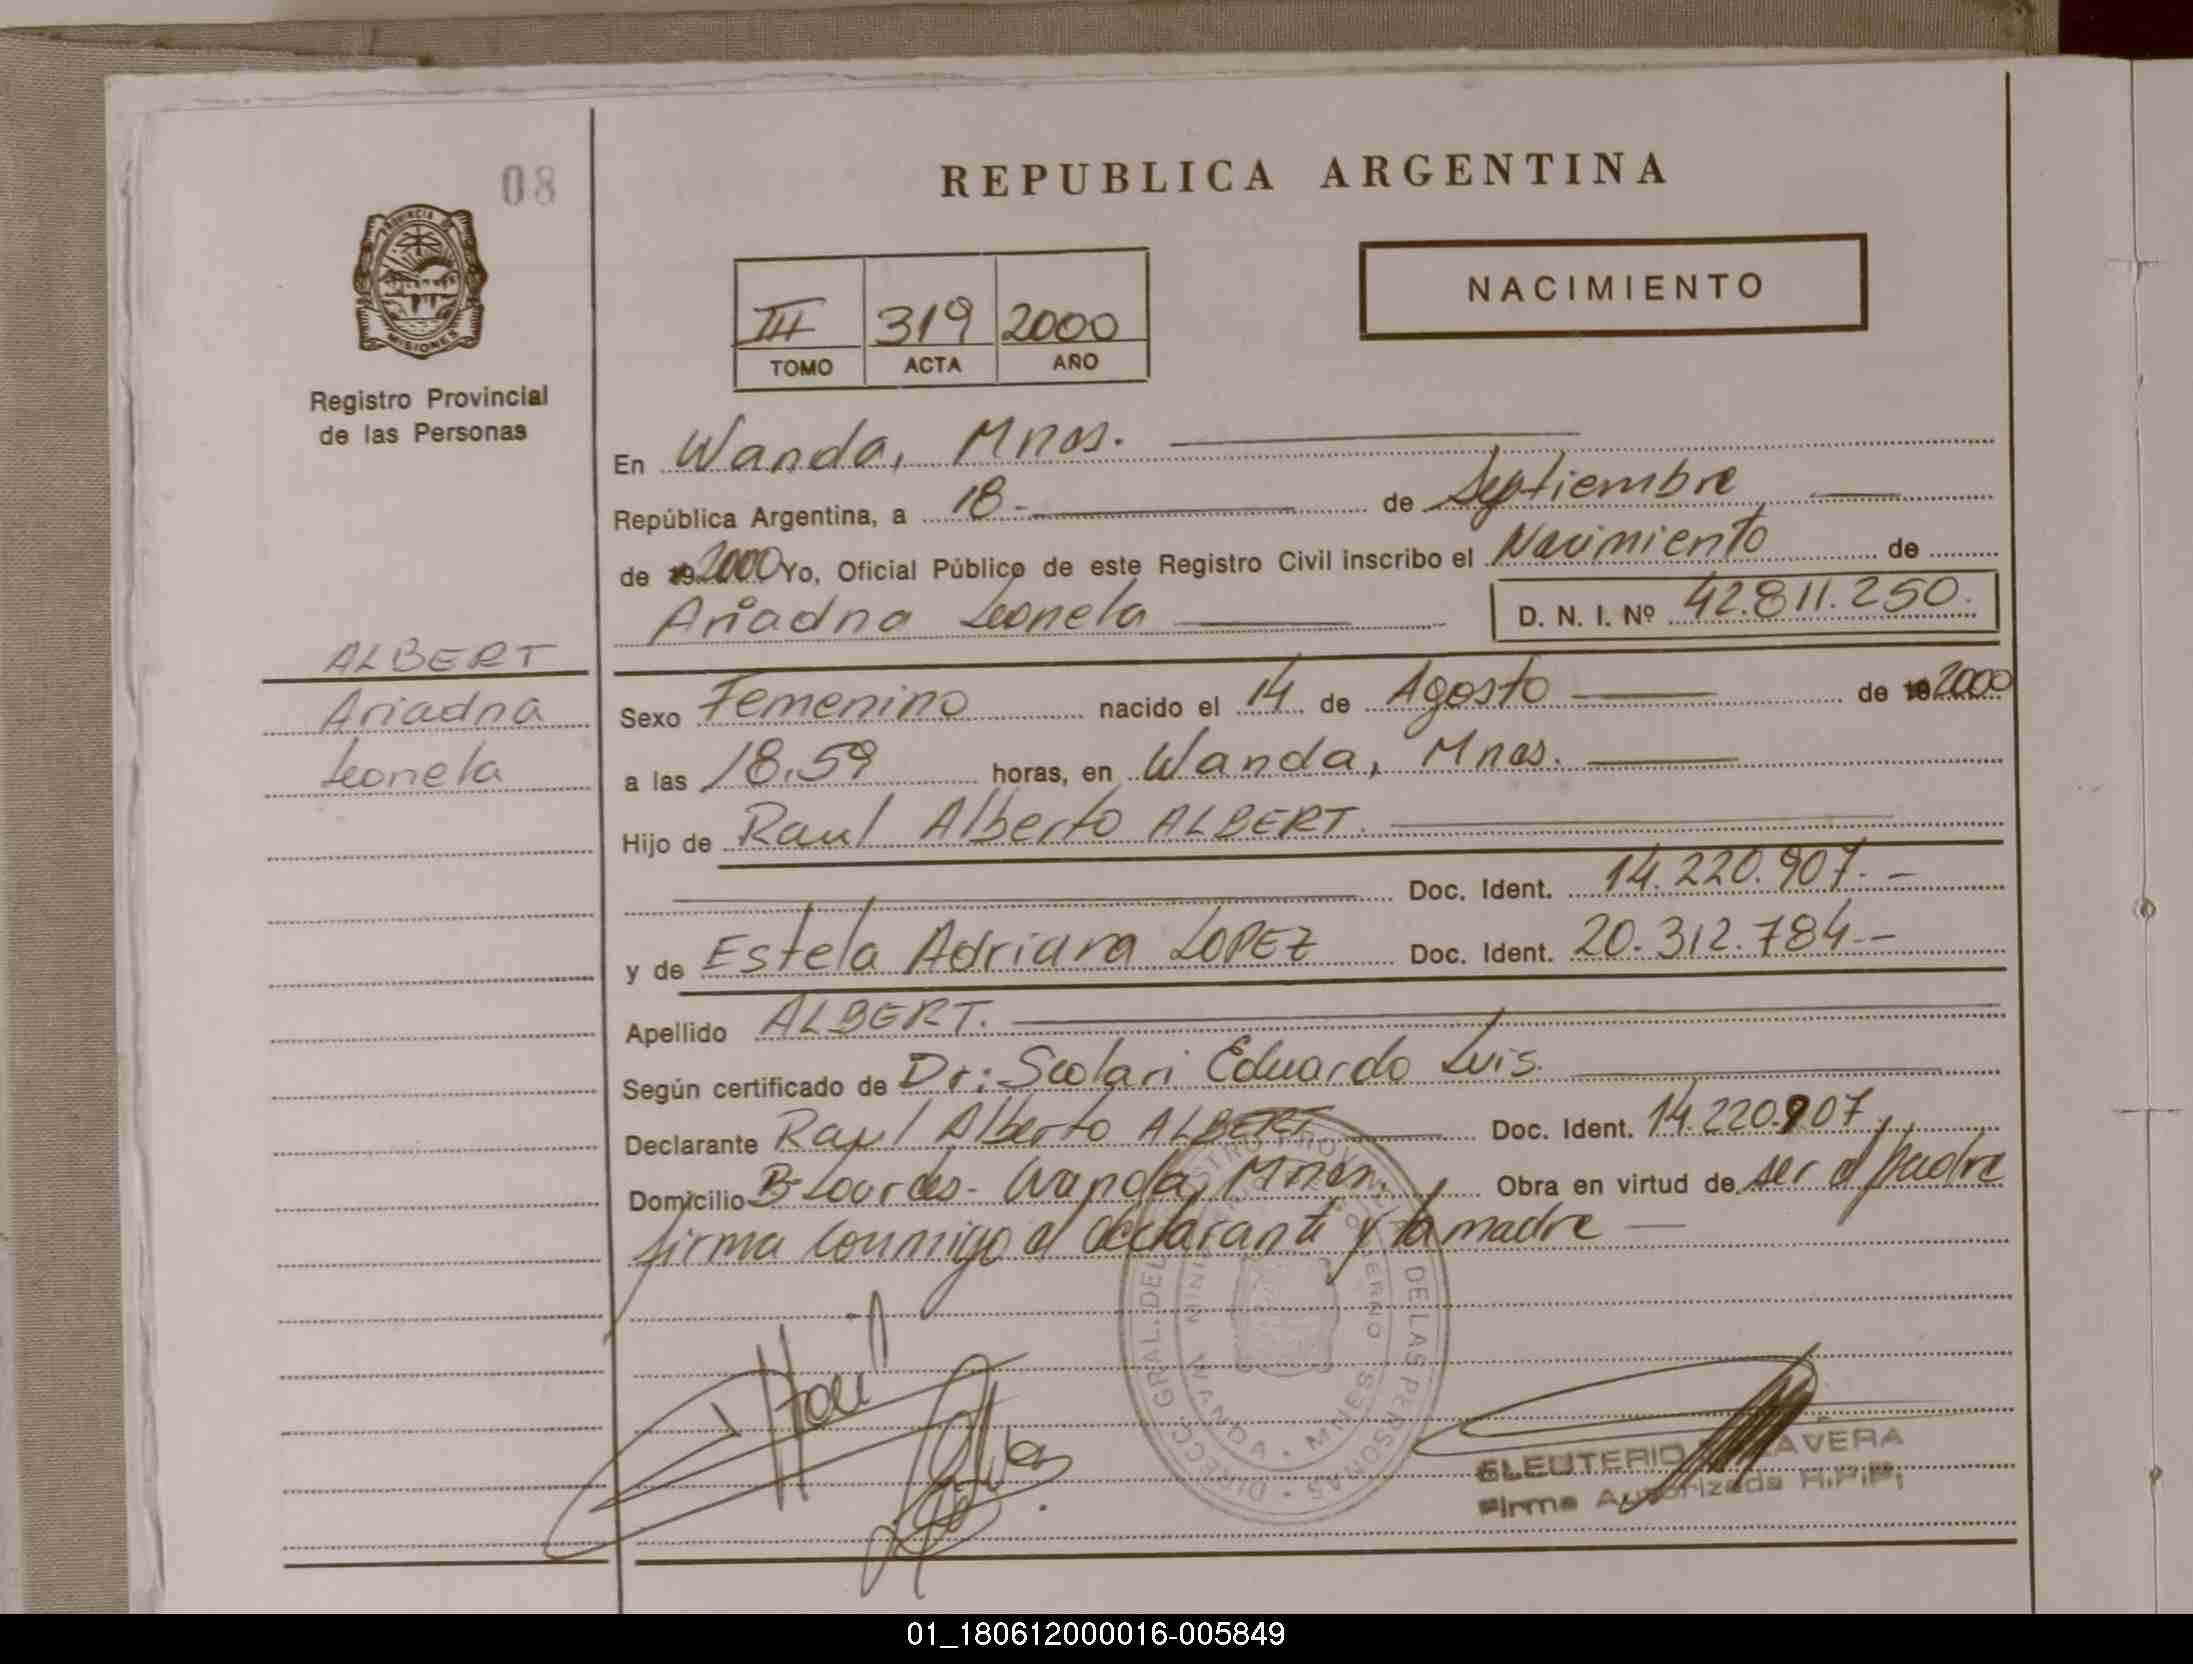 08
REPUBLICA ARGENTINA
PROVINCIA DE
MISIONES
Registro Provincial
de las Personas
III 319 2000
TOMO ACTA AÑO
NACIMIENTO
En Wanda, Mnes.
República Argentina, a 18 - de Septiembre
de 19 2000 Yo, Oficial Público de este Registro Civil inscribo el Nacimiento de
Ariadna Leonela D. N. I. Nº 42.811.250.
ALBERT
Ariadna
Leonela
Sexo Femenino nacido el 14 de Agosto de 19 2000
a las 18,59 horas, en Wanda, Mnes.
Hijo de Raul Alberto ALBERT.
Doc. Ident. 14.220.907.-
y de Estela Adriana LOPEZ Doc. Ident. 20.312.784.-
Apellido ALBERT.
Según certificado de Dr: Scolari Eduardo Luis.
Declarante Raul Alberto ALBERT Doc. Ident. 14.220.907.
Domicilio Bº Lourdes - Wanda, Mnes. Obra en virtud de ser el padre
firma conmigo el declarante y la madre
DIRECC. GRAL. DEL REGISTRO PROV. DE LAS PERSONAS
WANDA - MNES
ELEUTERIO
Firma Autorizada R.P.P.
01_180612000016-005849